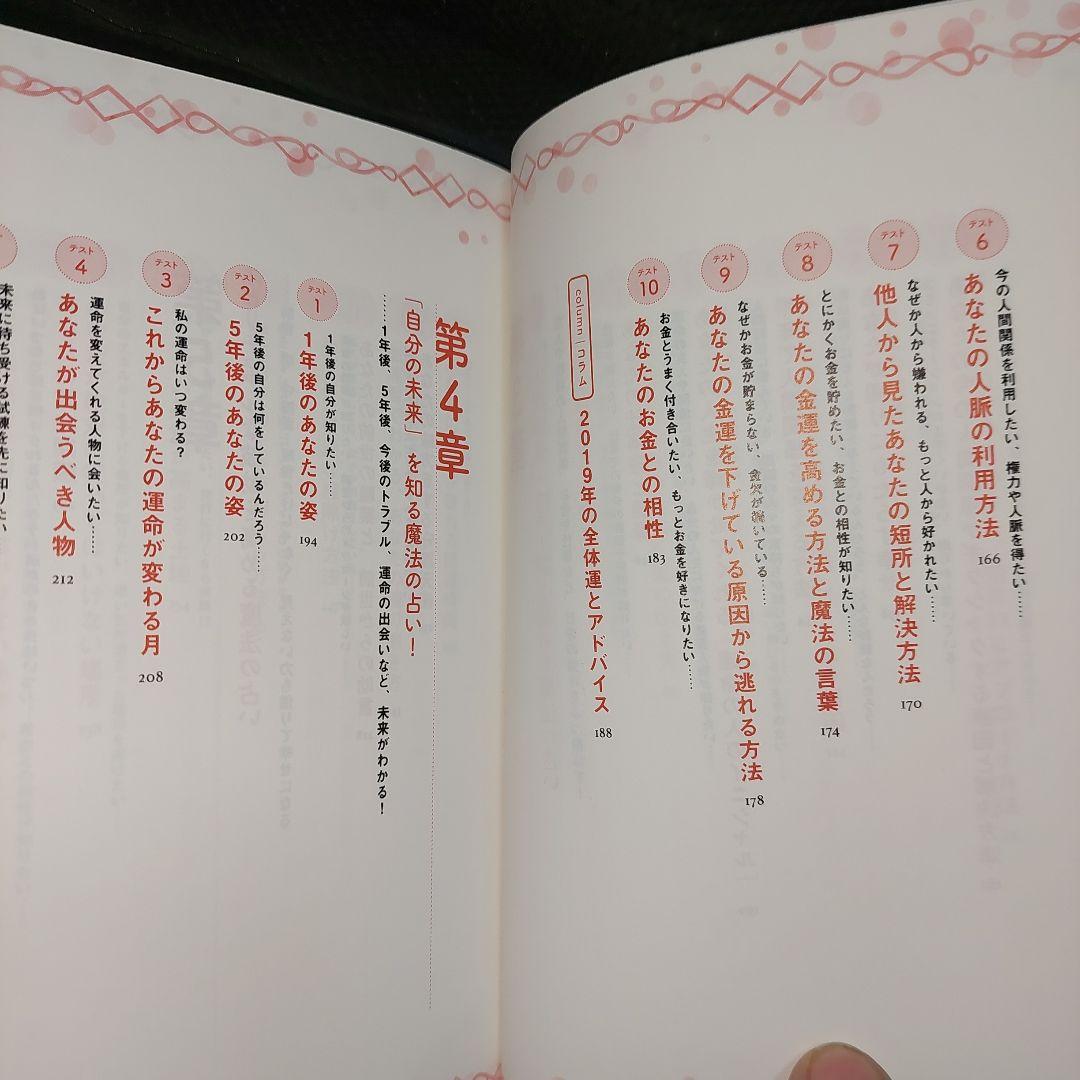 テスト
6
今の人間関係を利用したい、権力や人脈を得たい……
あなたの人脈の利用方法
166
テスト
7
なぜか人から嫌われる、もっと人から好かれたい……
他人から見たあなたの短所と解決方法
170
テスト
8
とにかくお金を貯めたい、お金との相性が知りたい……
あなたの金運を高める方法と魔法の言葉
174
テスト
9
なぜかお金が貯まらない、金欠が続いている……
あなたの金運を下げている原因から逃れる方法
178
テスト
10
お金とうまく付き合いたい、もっとお金を好きになりたい……
あなたのお金との相性
183
column コラム
2019年の全体運とアドバイス
188
第4章
「自分の未来」を知る魔法の占い!
……1年後、5年後、今後のトラブル、運命の出会いなど、未来がわかる!
テスト
1
1年後の自分が知りたい……
1年後のあなたの姿
194
テスト
2
5年後の自分は何をしているんだろう……
5年後のあなたの姿
202
テスト
3
私の運命はいつ変わる?
これからあなたの運命が変わる月
208
テスト
4
運命を変えてくれる人物に会いたい……
あなたが出会うべき人物
212
未来に待ち受ける試練を先に知りたい